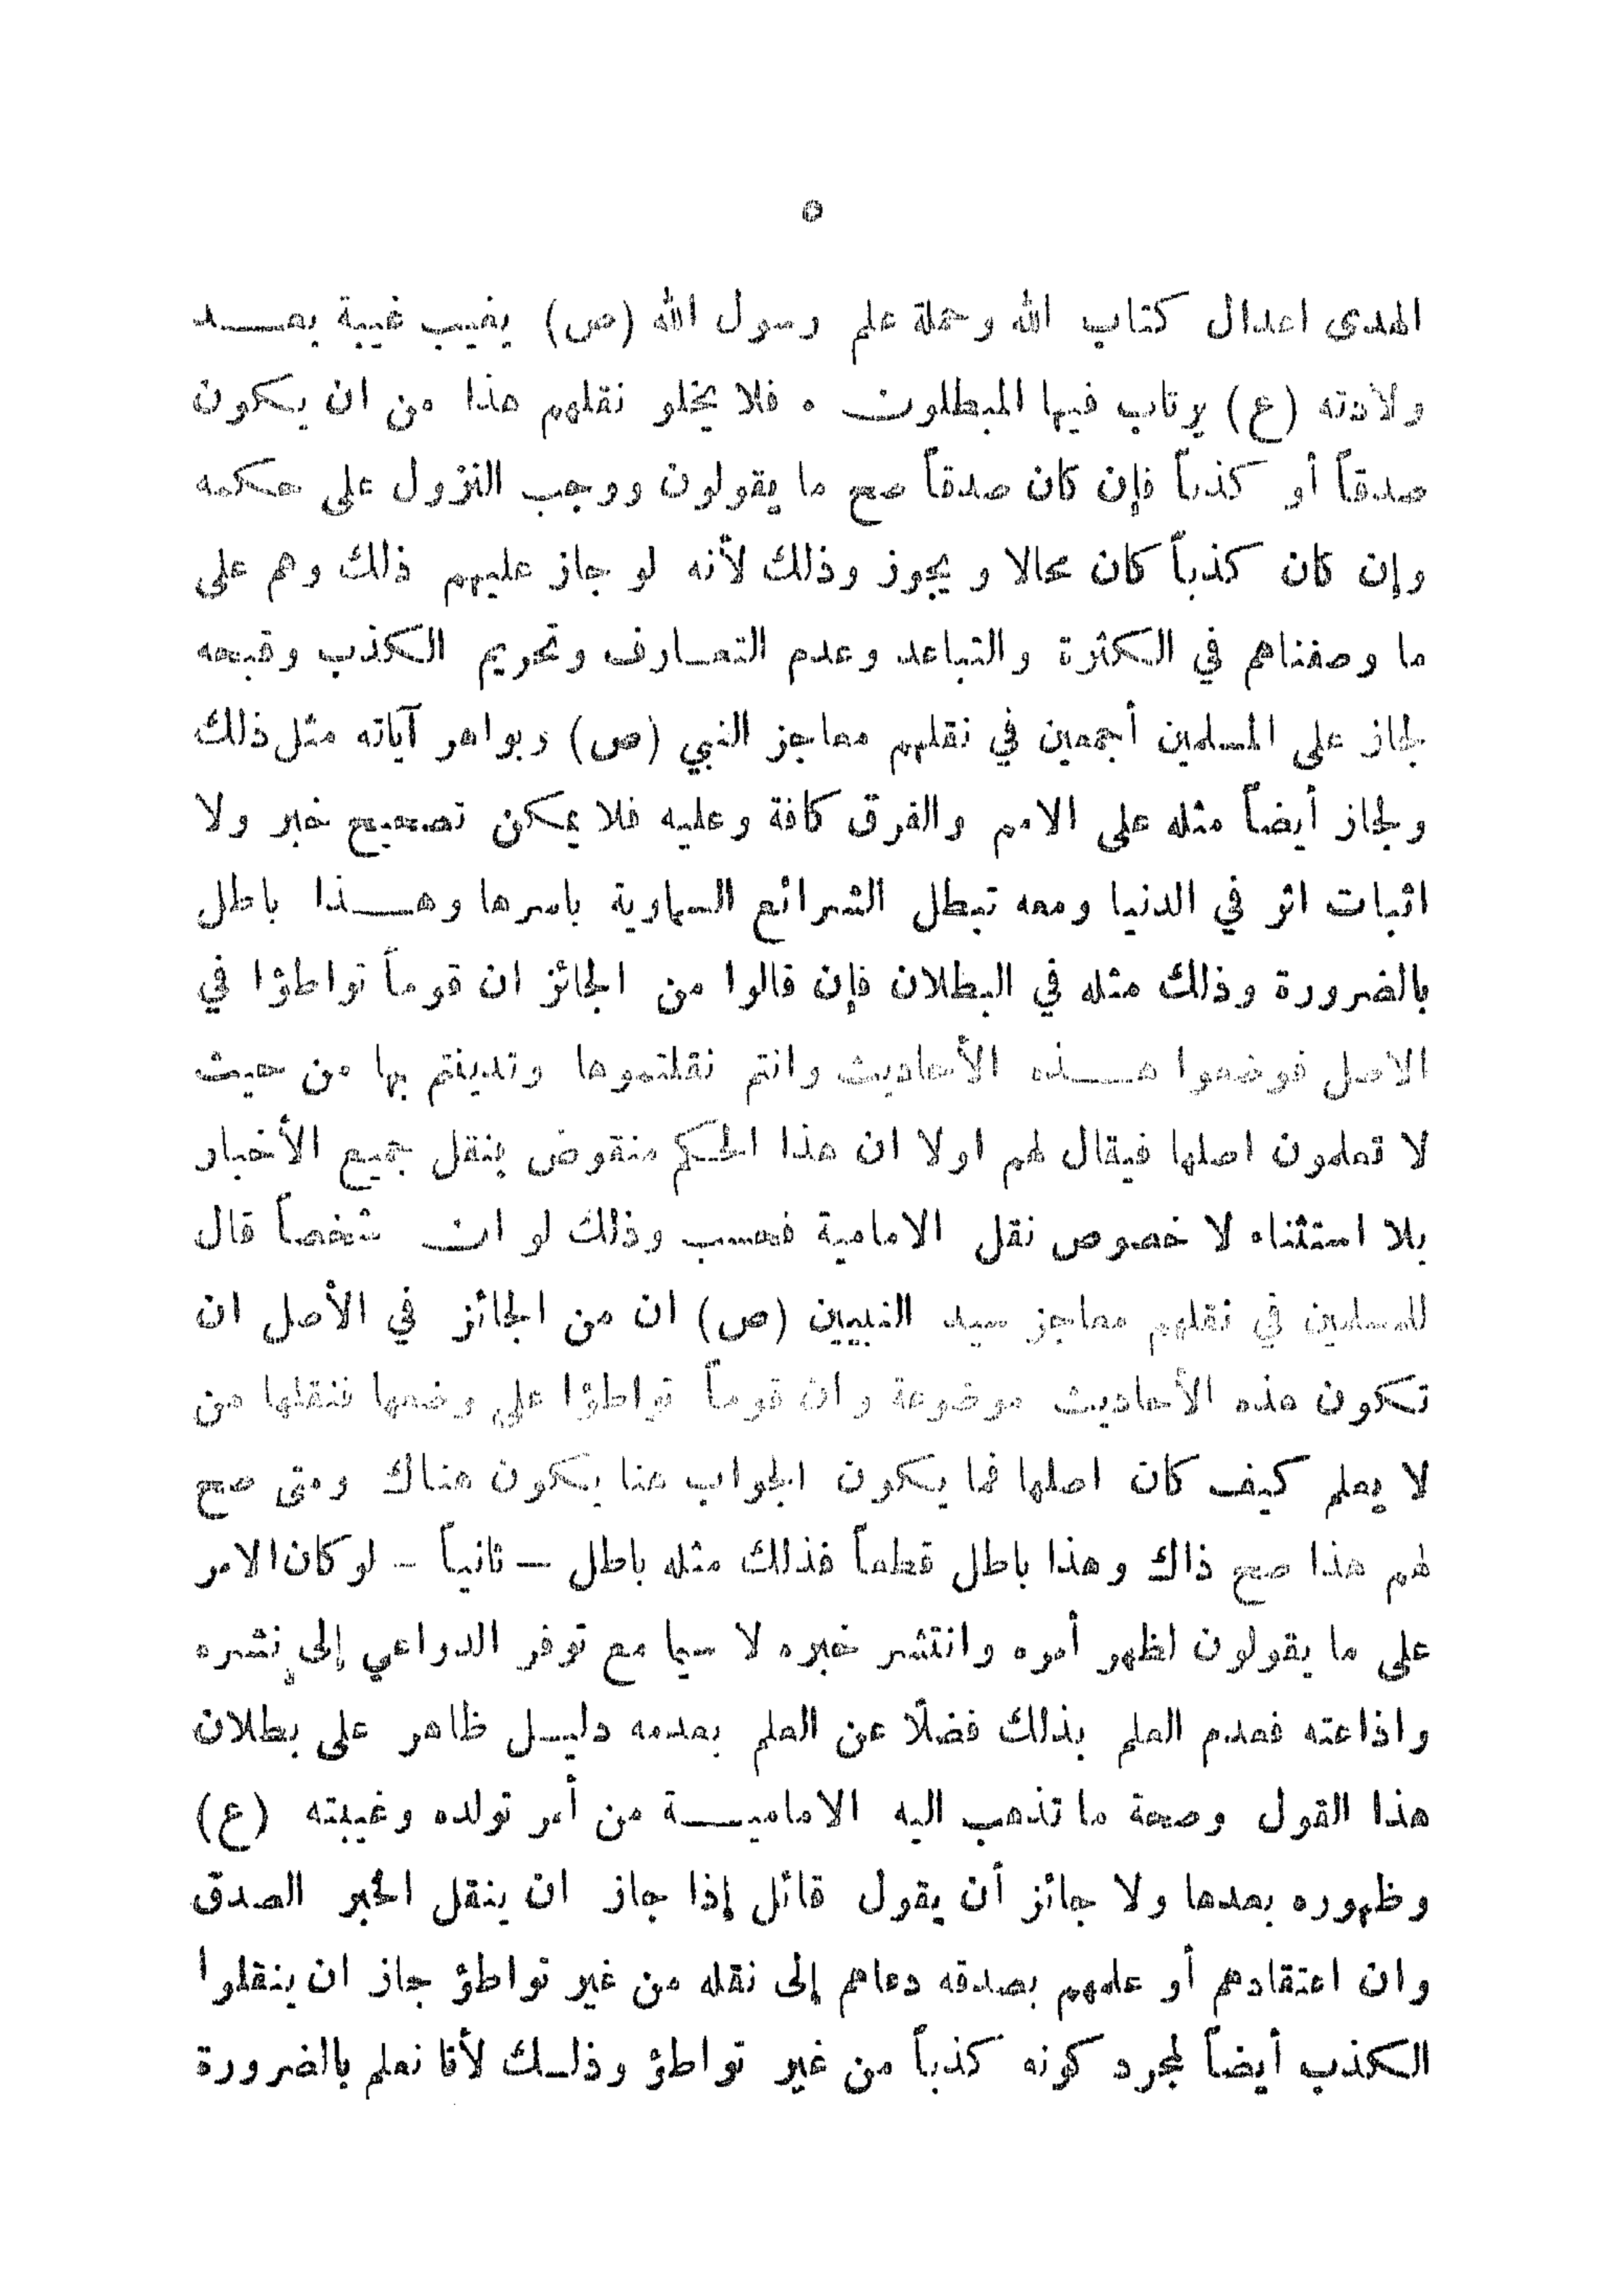 ٥
الهدى اعدال كتاب الله وحملة علم رسول الله (ص) يغيب غيبة بعـــد
ولادته (ع) يرتاب فيها المبطلون . فلا يخلو نقلهم هذا من ان يكون
صدقاً أو كذباً فإن كان صدقاً صح ما يقولون ووجب النزول على حكمه
وإن كان كذباً كان محالا و يجوز وذلك لأنه لو جاز عليهم ذلك وهم على
ما وصفناهم في الكثرة والتباعد وعدم التعـارف وتحريم الكذب وقبحه
لجاز على المسلمين أجمعين في نقلهم معاجز النبي (ص) وبواهر آياته مثل ذلك
ولجاز أيضاً مثله على الامم والفرق كافة وعليه فلا يمكن تصحيح خبر ولا
اثبات اثر في الدنيا ومعه تبطل الشرائع السماوية باسرها وهـــذا باطل
بالضرورة وذلك مثله في البطلان فإن قالوا من الجائز ان قوماً تواطؤا في
الاصل فوضعوا هـــذه الأحاديث وانتم نقلتموها وتدينتم بها من حيث
لا تعلمون اصلها فيقال لهم اولا ان هذا الحكم منقوض بنقل جميع الأخبار
بلا استثناء لا خصوص نقل الامامية فحسب وذلك لو ان شخصاً قال
للمسلمين في نقلهم معاجز سيد النبيين (ص) ان من الجائز في الأصل ان
تكون هذه الأحاديث موضوعة وان قوماً تواطؤا على وضعها فنقلها من
لا يعلم كيف كان اصلها فما يكون الجواب هنا يكون هناك ومتى صح
لهم هذا صح ذاك وهذا باطل قطعاً فذلك مثله باطل – ثانياً – لو كان الامر
على ما يقولون لظهر أمره وانتشر خبره لا سيما مع توفر الدواعي إلى نشره
واذاعته فعدم العلم بذلك فضلًا عن العلم بعدمه دليـل ظاهر على بطلان
هذا القول وصحة ما تذهب اليه الاماميـــة من أمر تولده وغيبته (ع)
وظهوره بعدها ولا جائز أن يقول قائل إذا جاز ان ينقل الخبر الصدق
وان اعتقادهم أو علمهم بصدقه دعاهم إلى نقله من غير تواطؤ جاز ان ينقلوا
الكذب أيضاً لمجرد كونه كذباً من غير تواطؤ وذلـك لأنا نعلم بالضرورة